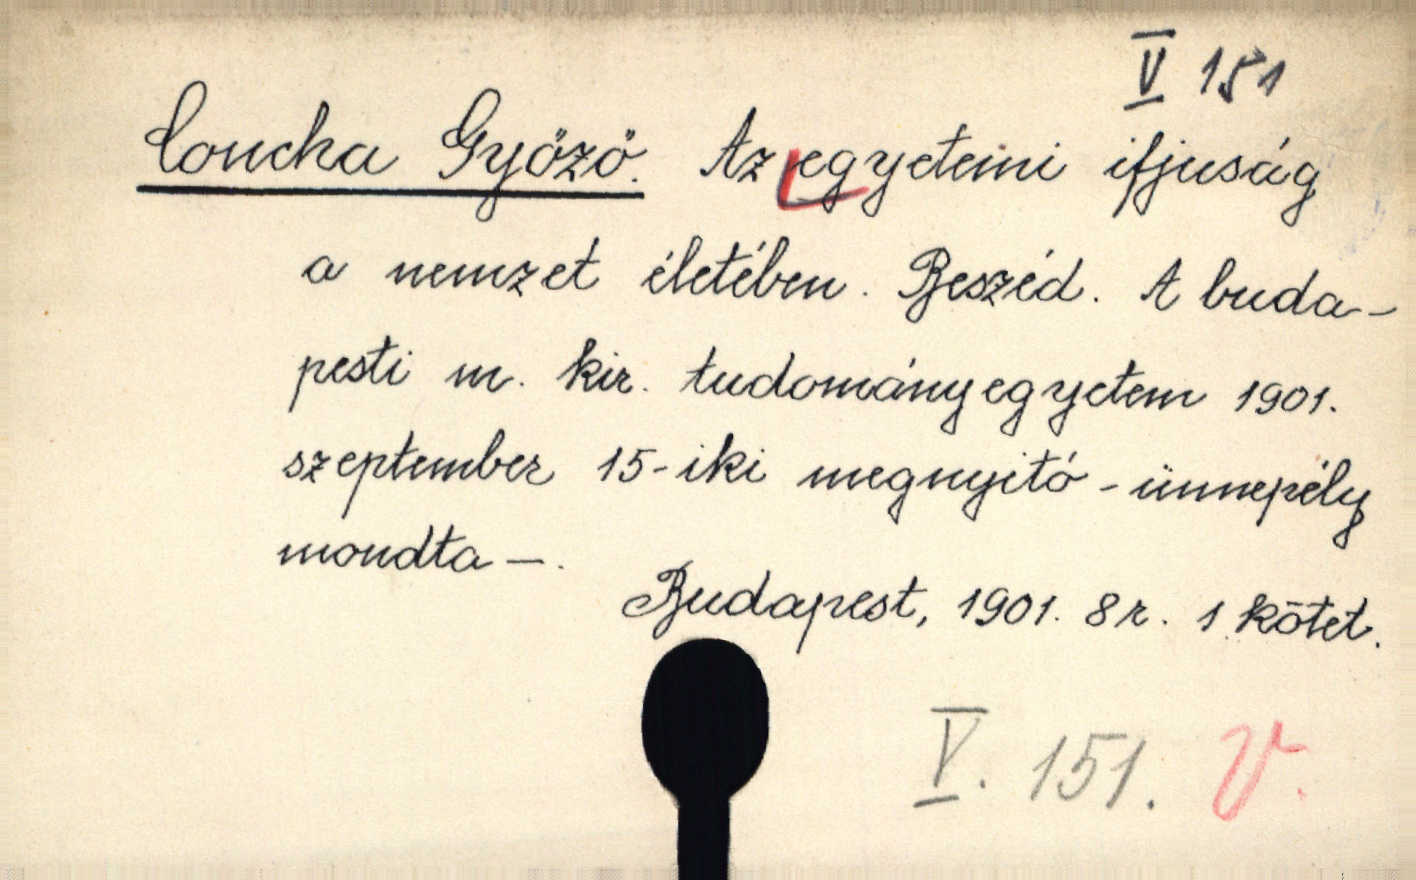 V 151
Concha Győző. Az egyetemi ifjuság
a nemzet életében. Beszéd. A buda-
pesti m. kir. tudományegyetem 1901.
szeptember 15-iki megnyitó-ünnepély
mondta —.
Budapest, 1901. 8r. 1 kötet.
V. 151. V.